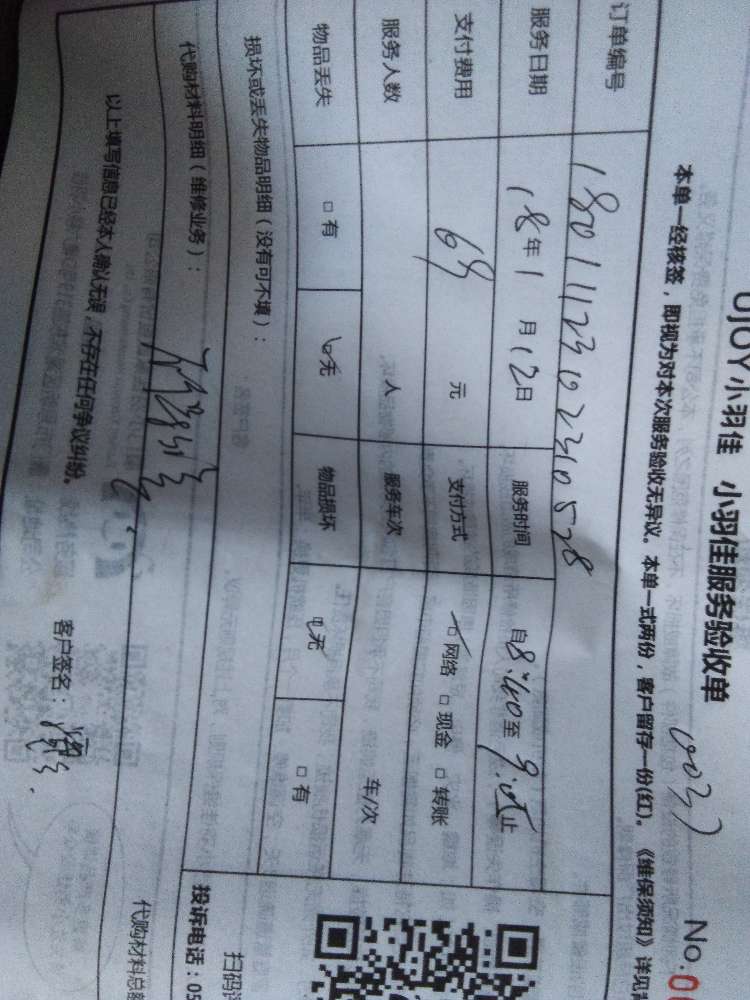 UJOY小羽佳 小羽佳服务验收单
No.0
本单一经核签，即视为对本次服务验收无异议。本单一式两份，客户留存一份(红)。《维保须知》详见
订单编号 180111231023105 28
服务日期 18年1月12日 服务时间 自8:40至9:05止
支付费用 69元 支付方式 □网络 □现金 □转账
服务人数 人 服务车次 车/次
物品丢失 □有 □无 物品损坏 □无 □有
损坏或丢失物品明细（没有可不填）：
代购材料明细（维修业务）：
代购材料总
以上填写信息已经本人确认无误，不存在任何争议纠纷。
客户签名：
扫码
投诉电话：05